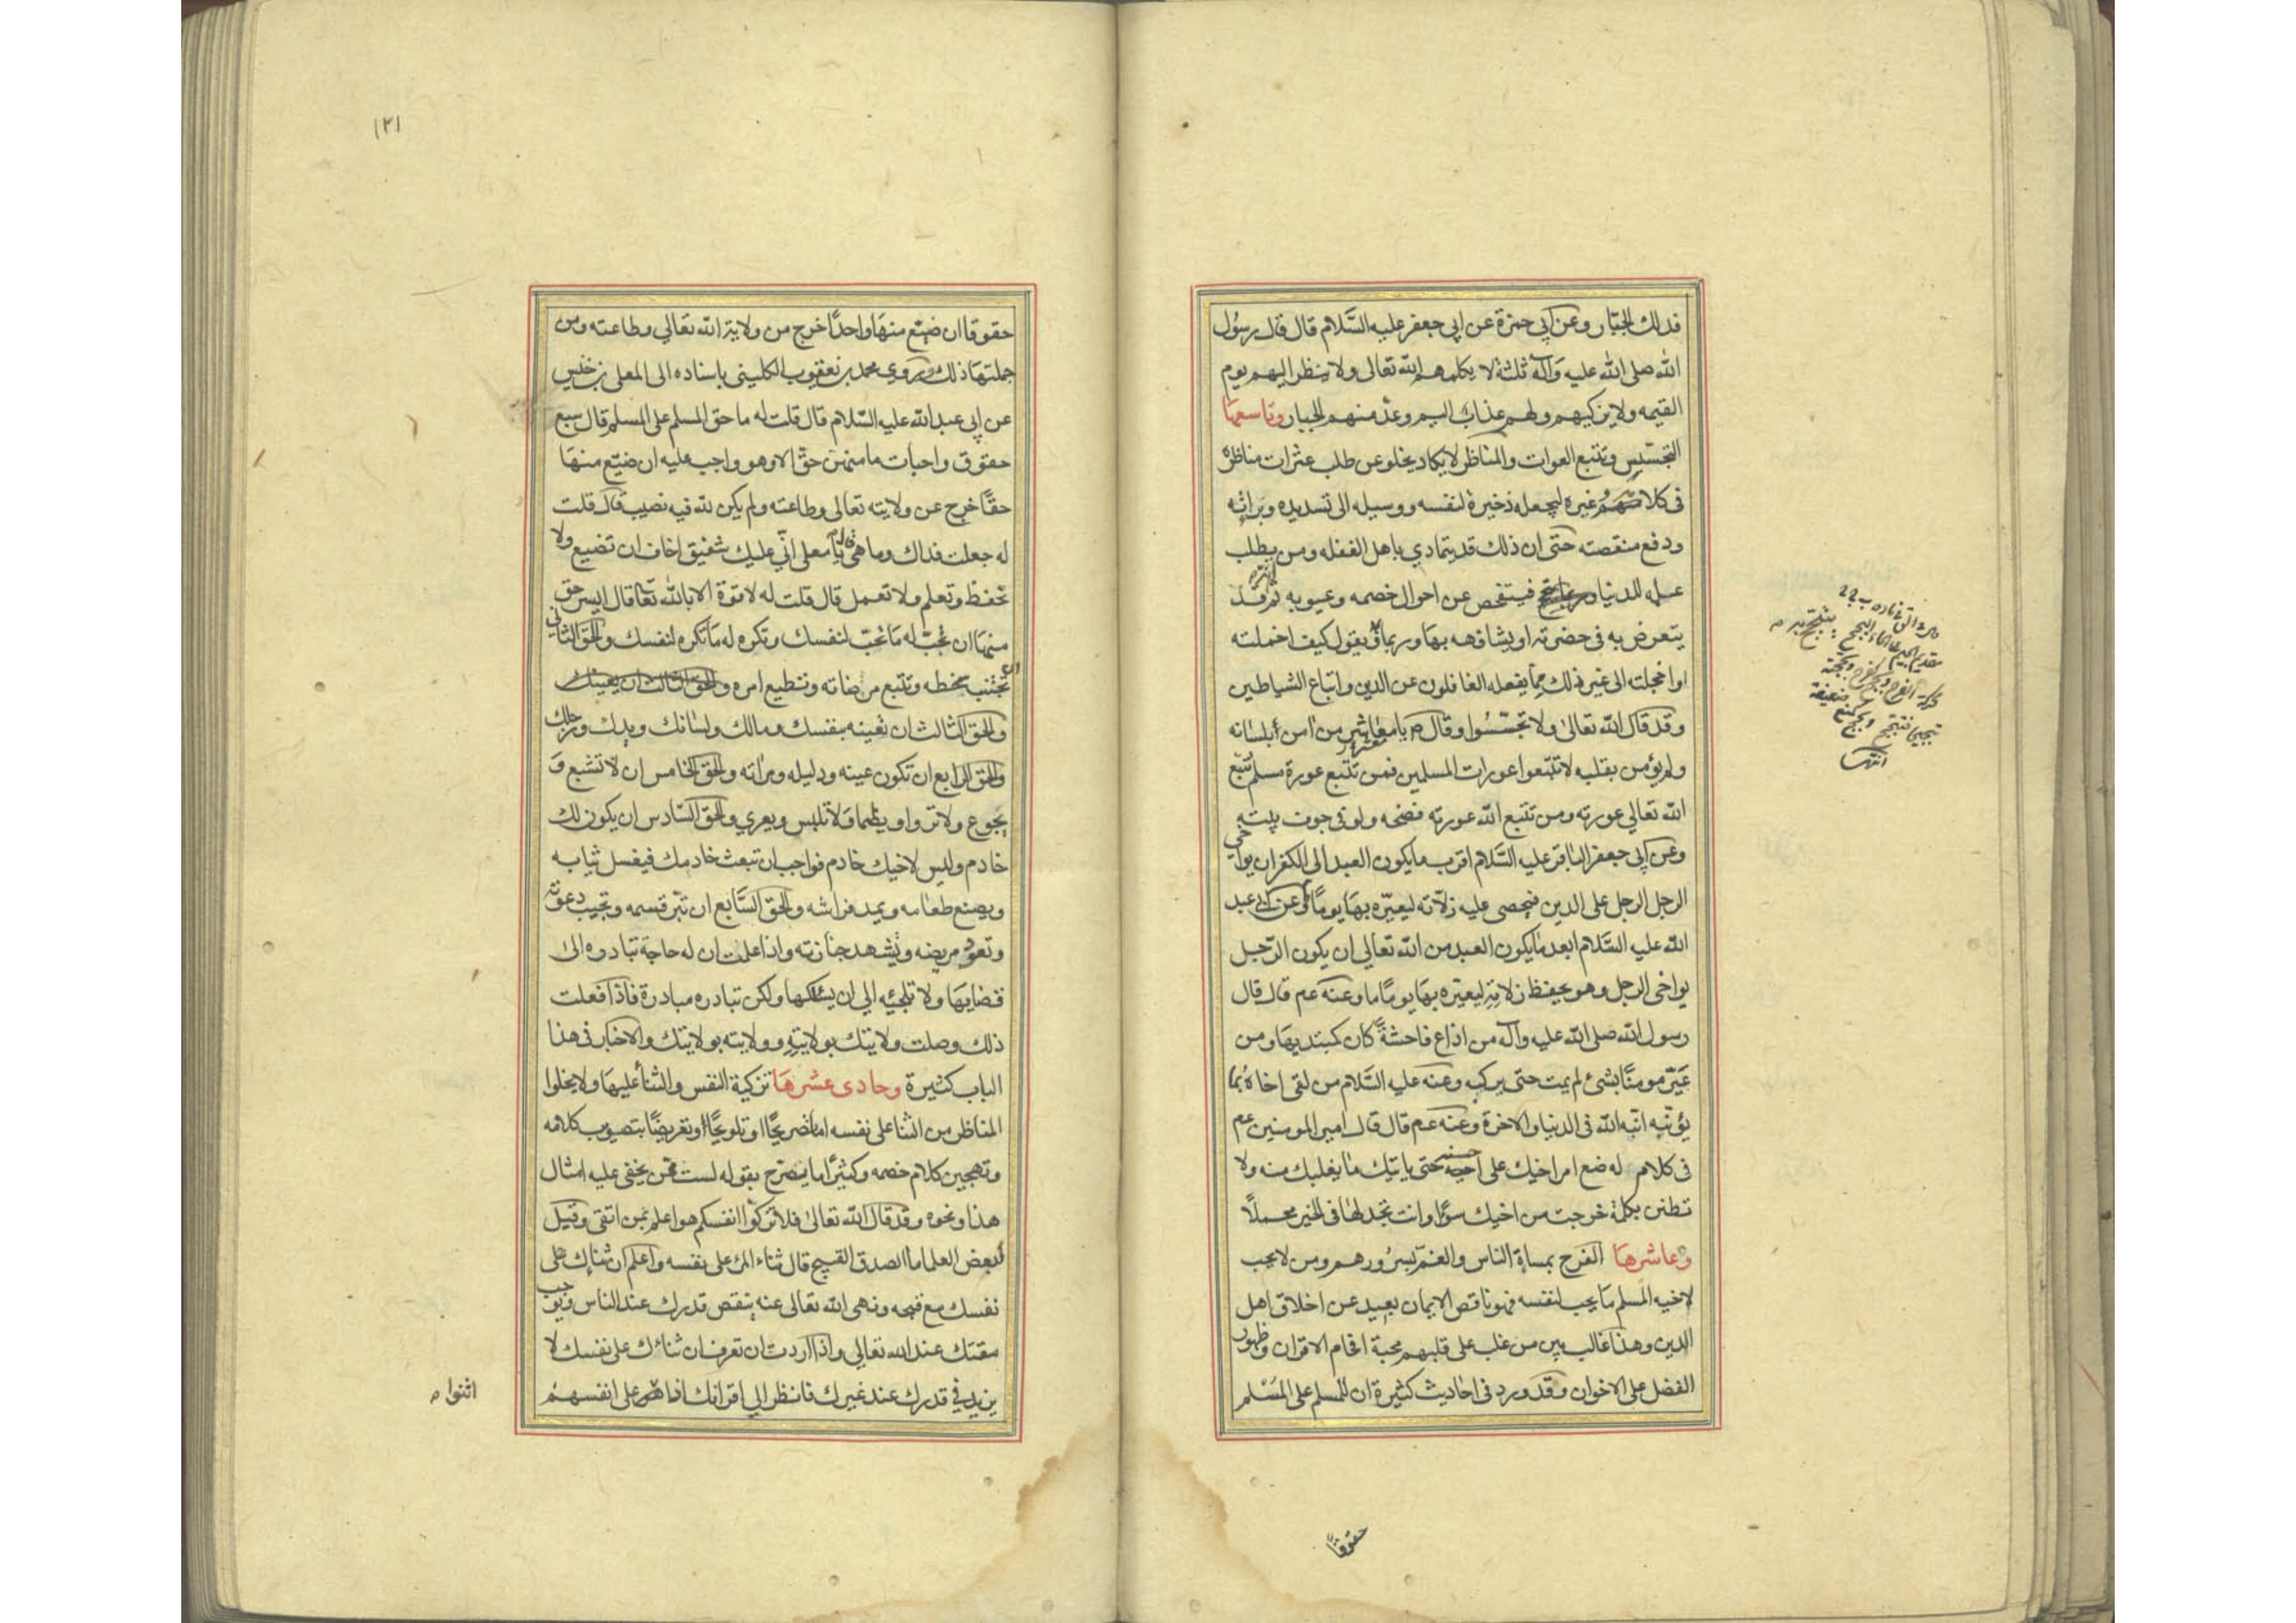 فذلك الجبار وعن ابي حمزة عن ابي جعفر عليه السَّلام قال قال رسُول
الله صلى الله عليه وآله ثلثة لا يكلمهم الله تعالى ولا ينظر اليهم يوم
القيمه ولا يزكيهم ولهم عذاب اليم وعدّ منهم الجبار وتاسعها
التجسّس وتتبع العورات والمناظر لا يكاد يخلو عن طلب عثرات مناظره
فى كلامه غيره ليجعله ذخيرة لنفسه ووسيله الى تسديده وبراته
ودفع منقصته حتى ان ذلك قد يتمادي باهل الغفله ومن يطلب
علمه للدنيا فيتفحص عن احوال خصمه وعيوبه ثم قد
يتعرض به فى حضرته او يشافهه بها وربما يقول كيف اخملته
واخجلته الى غير ذلك مما يفعله الغافلون عن الدين واتباع الشياطين
وقد قال الله تعالى ولا تجسّسُوا وقال يا معاشر من آمن بلسانه
ولم يؤمن بقلبه لا تتبّعوا عورات المسلمين فمن تتبع عورة مسلم تتبع
الله تعالي عورته ومن تتبع الله عورته فضحه ولو فى جوف بيته
وعن ابي جعفر الباقر عليه السَّلام اقرب ما يكون العبد الى الكفر ان يواخي
الرجل الرجل على الدين فيحصى عليه زلّاته ليعيّره بها يوما وعن ابي عبد
الله عليه السَّلام ابعد ما يكون العبد من الله تعالي ان يكون الرّجل
يواخى الرجل وهو يحفظ زلاته ليعيّره بها يومًا ما وعنه عم قال قال
رسول الله صلى الله عليه وآله من اذاع فاحشةً كان كمبتديها ومن
عَيّر مومنًا بشئ لم يمت حتى يركبه وعنه عليه السَّلام من لقى اخاهُ بما
يؤنّبه انّبه الله فى الدنيا والاخرة وعنه عم قال قال امير المومنين عم
فى كلام له ضع امر اخيك على احسنه حتى ياتيك ما يغلبك منه ولا
تظنن بكلمة خرجت من اخيك سوءًا وانت تجد لها فى الخير محملًا
وعاشرها الفرح بمساءة الناس والغمّ بسرورهم ومن لا يحب
لاخيه المسلم ما يحب لنفسه فهو ناقص الايمان بعيد عن اخلاق اهل
الدين وهذا غالب بين من غلب على قلبهم محبة افحام الاقران وظهور
الفضل على الاخوان وقد ورد فى احاديث كثيرة ان للمسلم على المسْلم
حقوقًا
١٢١
حقوقا ان ضيّع منها واحدًا خرج من ولاية الله تعالي وطاعته ومن
جملتها ذلك روي محمد بن يعقوب الكليني باسناده الى المعلى بن خنيس
عن ابي عبد الله عليه السّلام قال قلت له ما حق المسلم على المسلم قال سبع
حقوق واجبات ما منهن حقّ الا وهو واجب عليه ان ضيّع منها
حقًّا خرج عن ولايته تعالى وطاعته ولم يكن لله فيه نصيب قال قلت
له جعلت فداك وما هي قال يا معلى انّي عليك شفيق اخاف ان تضيع ولا
تحفظ وتعلم ولا تعمل قال قلت له لا قوة الا بالله تعا قال ايسر حق
منها ان تحبّ له ما تحبّ لنفسك وتكره له ما تكره لنفسك والحق الثاني
ان تجتنب سخطه وتتبع مرضاته وتطيع امره والحق الثالث ان يعينك
والحق الثالث ان تعينه بنفسك ومالك ولسانك ويدك ورجلك
والحق الرابع ان تكون عينه ودليله ومراته والحق الخامس ان لا تشبع و
يجوع ولا تروا ويظما ولا تلبس ويعري والحق السّادس ان يكون لك
خادم وليس لاخيك خادم فواجب ان تبعث خادمك فيغسل ثيابه
ويصنع طعامه ويمد فراشه والحق السَّابع ان تبّر قسمه وتجيب دعوته
وتعود مريضه وتشهد جنازته واذا علمت ان له حاجة تبادره الى
قضايها ولا تلجئه الي ان يسئلكها ولكن تبادره مبادرة فاذا فعلت
ذلك وصلت ولايتك بولايته وولايته بولايتك والاخبار فى هذا
الباب كثيرة وحادى عشرها تزكية النفس والثناء عليها ولا يخلوا
المناظر من الثنا على نفسه اما تصريحًا او تلويحًا او تعريضًا بتصويب كلامه
وتهجين كلام خصمه وكثيرًا ما يصرّح بقوله لست ممّن يخفى عليه امثال
هذا ونحوه وقد قال الله تعالى فلا تزكّوا انفسكم هو اعلم بمن اتقى وقيل
لبعض العلما ما الصدق القبيح قال ثناء المرء على نفسه واعلم ان ثناك على
نفسك مع قبحه ونهى الله تعالى عنه ينقص قدرك عند الناس ويوجب
مقتك عند الله تعالي واذا اردت ان تعرف ان ثناءك على نفسك لا
يزيد في قدرك عند غيرك فانظر الي اقرانك اذا هم على انفسهم
اثنوا م